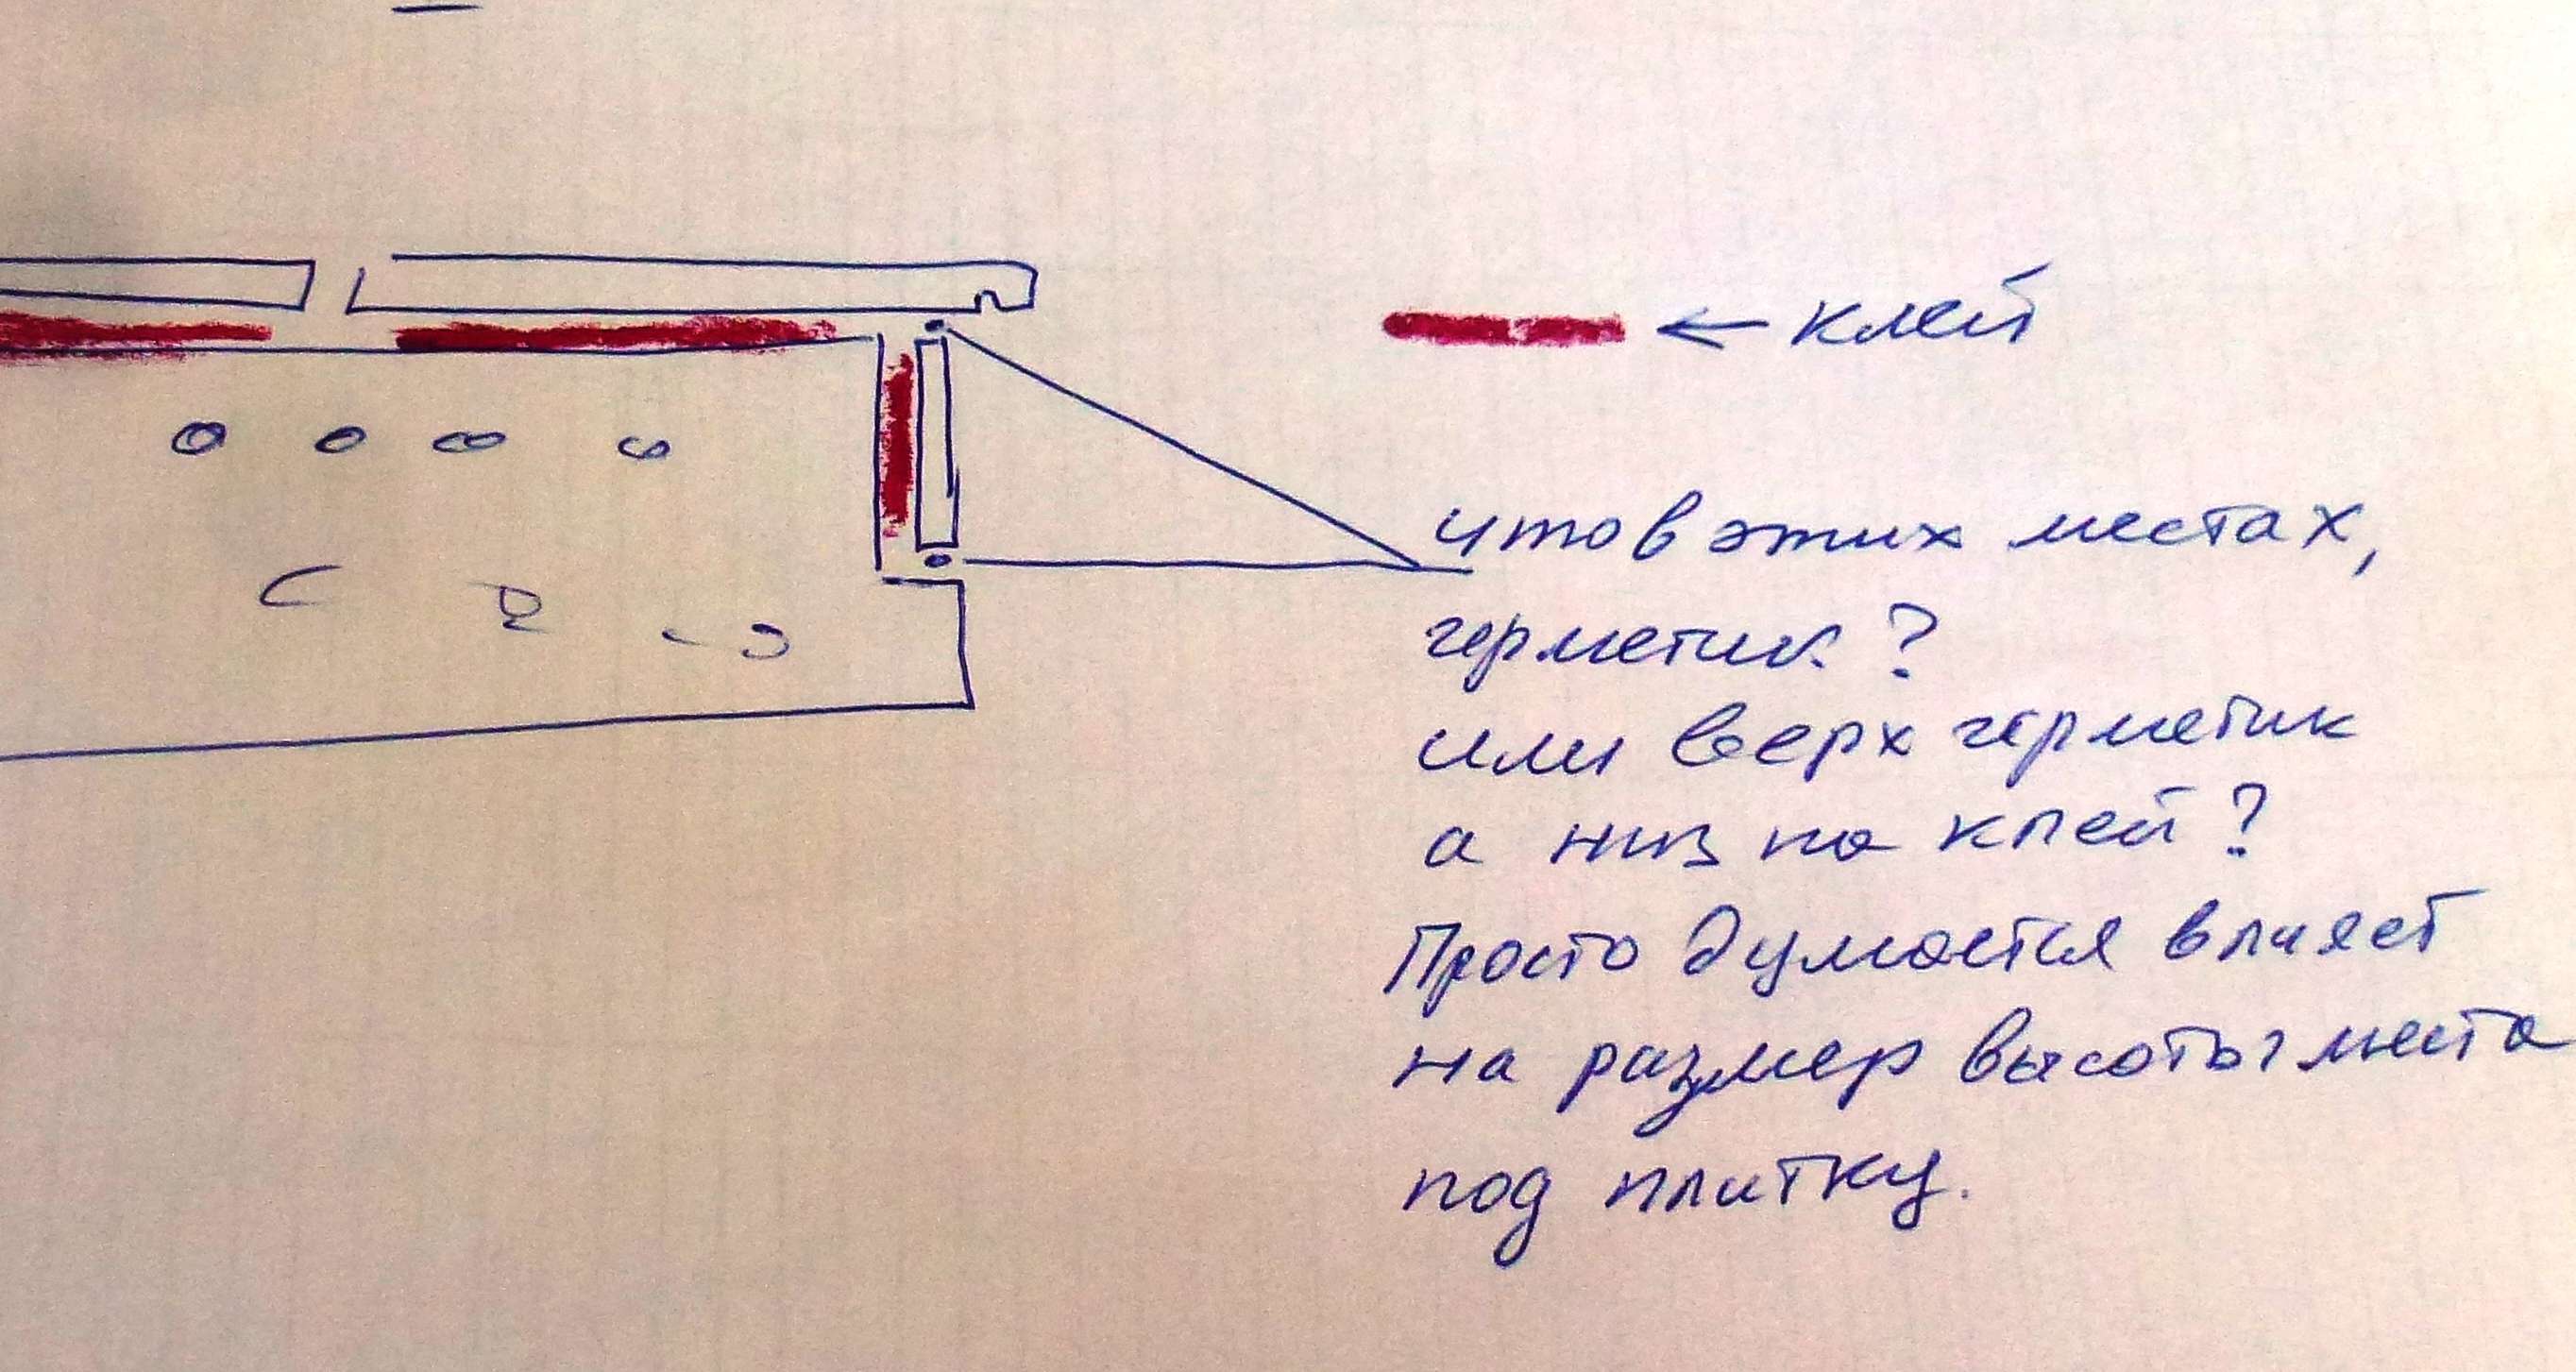 клей
что в этих местах,
герметик?
или верх герметик
а низ на клей?
Просто думается влияет
на размер высоты места
под плитку.